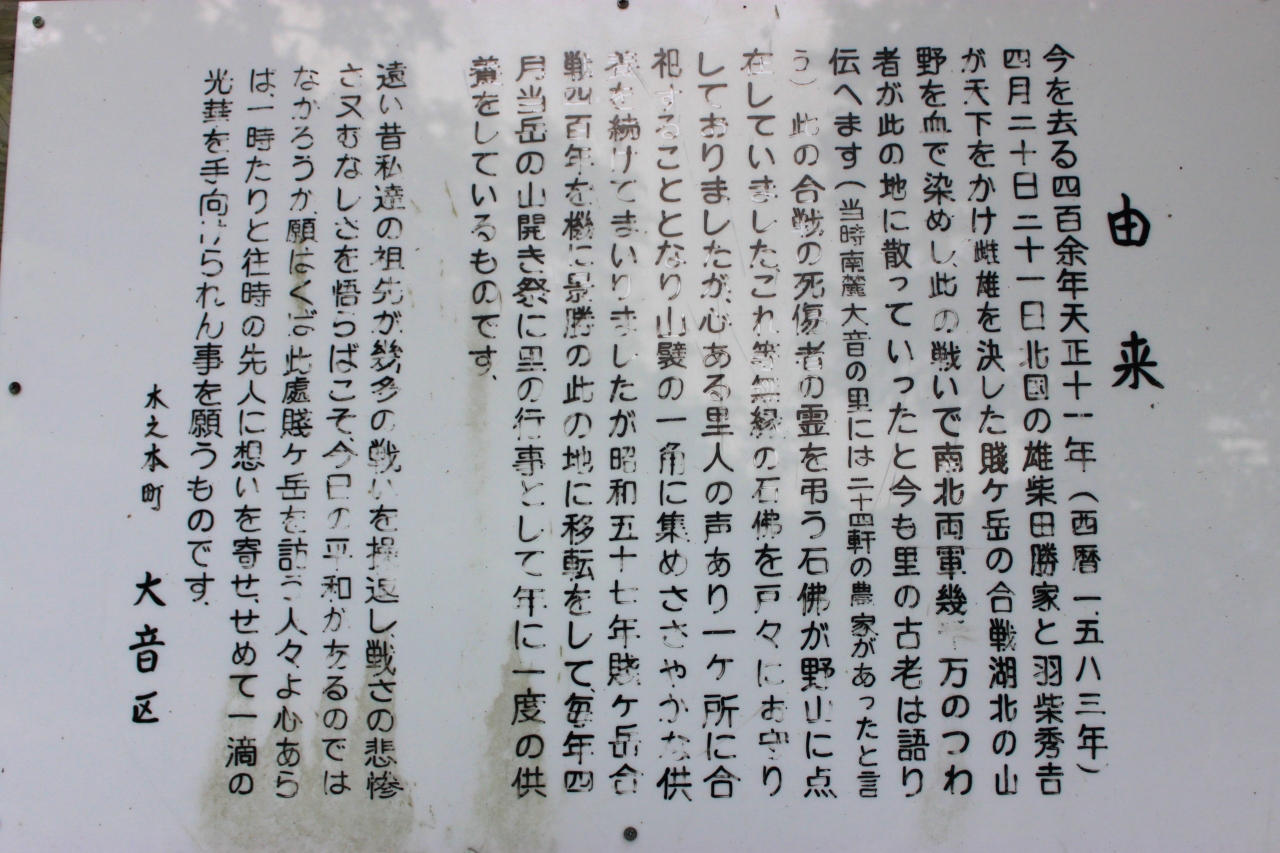 由来
今を去る四百余年天正十一年（西暦一、五八三年）
四月二十日二十一日北國の雄柴田勝家と羽柴秀吉
が天下をかけ雌雄を決した賤ヶ岳の合戦湖北の山
野を血で染めし、此の戦いで南北両軍幾千万のつわ
者が此の地に散っていったと今も里の古老は語り
伝へます（当時南麓大音の里には二十四軒の農家があったと言
う）此の合戦の死傷者の霊を弔う石佛が野山に点
在していました、これ等無縁の石佛を戸々にお守り
しておりましたが、心ある里人の声あり一ヶ所に合
祀することとなり山襞の一角に集めささやかな供
養を続けてまいりましたが昭和五十七年賤ヶ岳合
戦四百年を機に景勝の此の地に移転をして、毎年四
月当岳の山開き祭に里の行事として年に一度の供
養をしているものです、
遠い昔私達の祖先が幾多の戦いを操返し、戦さの悲惨
さ又むなしさを悟らばこそ、今日の平和があるのでは
なかろうか願はくば此處賤ヶ岳を訪う人々よ心あら
は、一時たりと往時の先人に想いを寄せ、せめて一滴の
光華を手向けられん事を願うものです、
木之本町 大音区